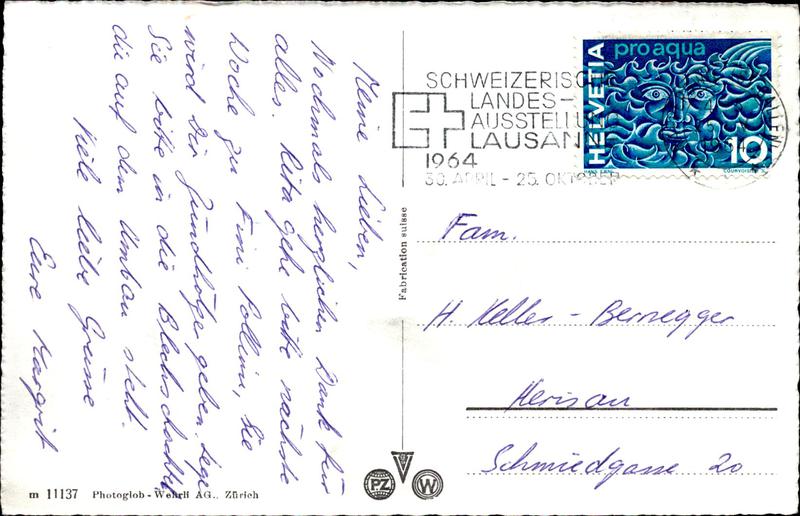 Meine Lieben,
Nochmals herzlichen Dank für
alles. Rita gehe bitte nächste
Woche zu Frau Pollini, Sie
wird dir Zündhölze geben. Leg
Sie bitte in die Blechschachtel
die auf dem Umbau steht.
Viele liebe Grüsse
Eure Margrit
m 11137 Photoglob-Wehrli AG., Zürich
Fabrication suisse
PZ W
SCHWEIZERISCHE
LANDES-
AUSSTELLUNG
LAUSANNE
1964
30. APRIL - 25. OKTOBER
HELVETIA
pro aqua
10
HANS ERNI
COURVOISIER S.A.
Fam.
H. Keller - Bernegger
Herisau
Schmiedgasse 20